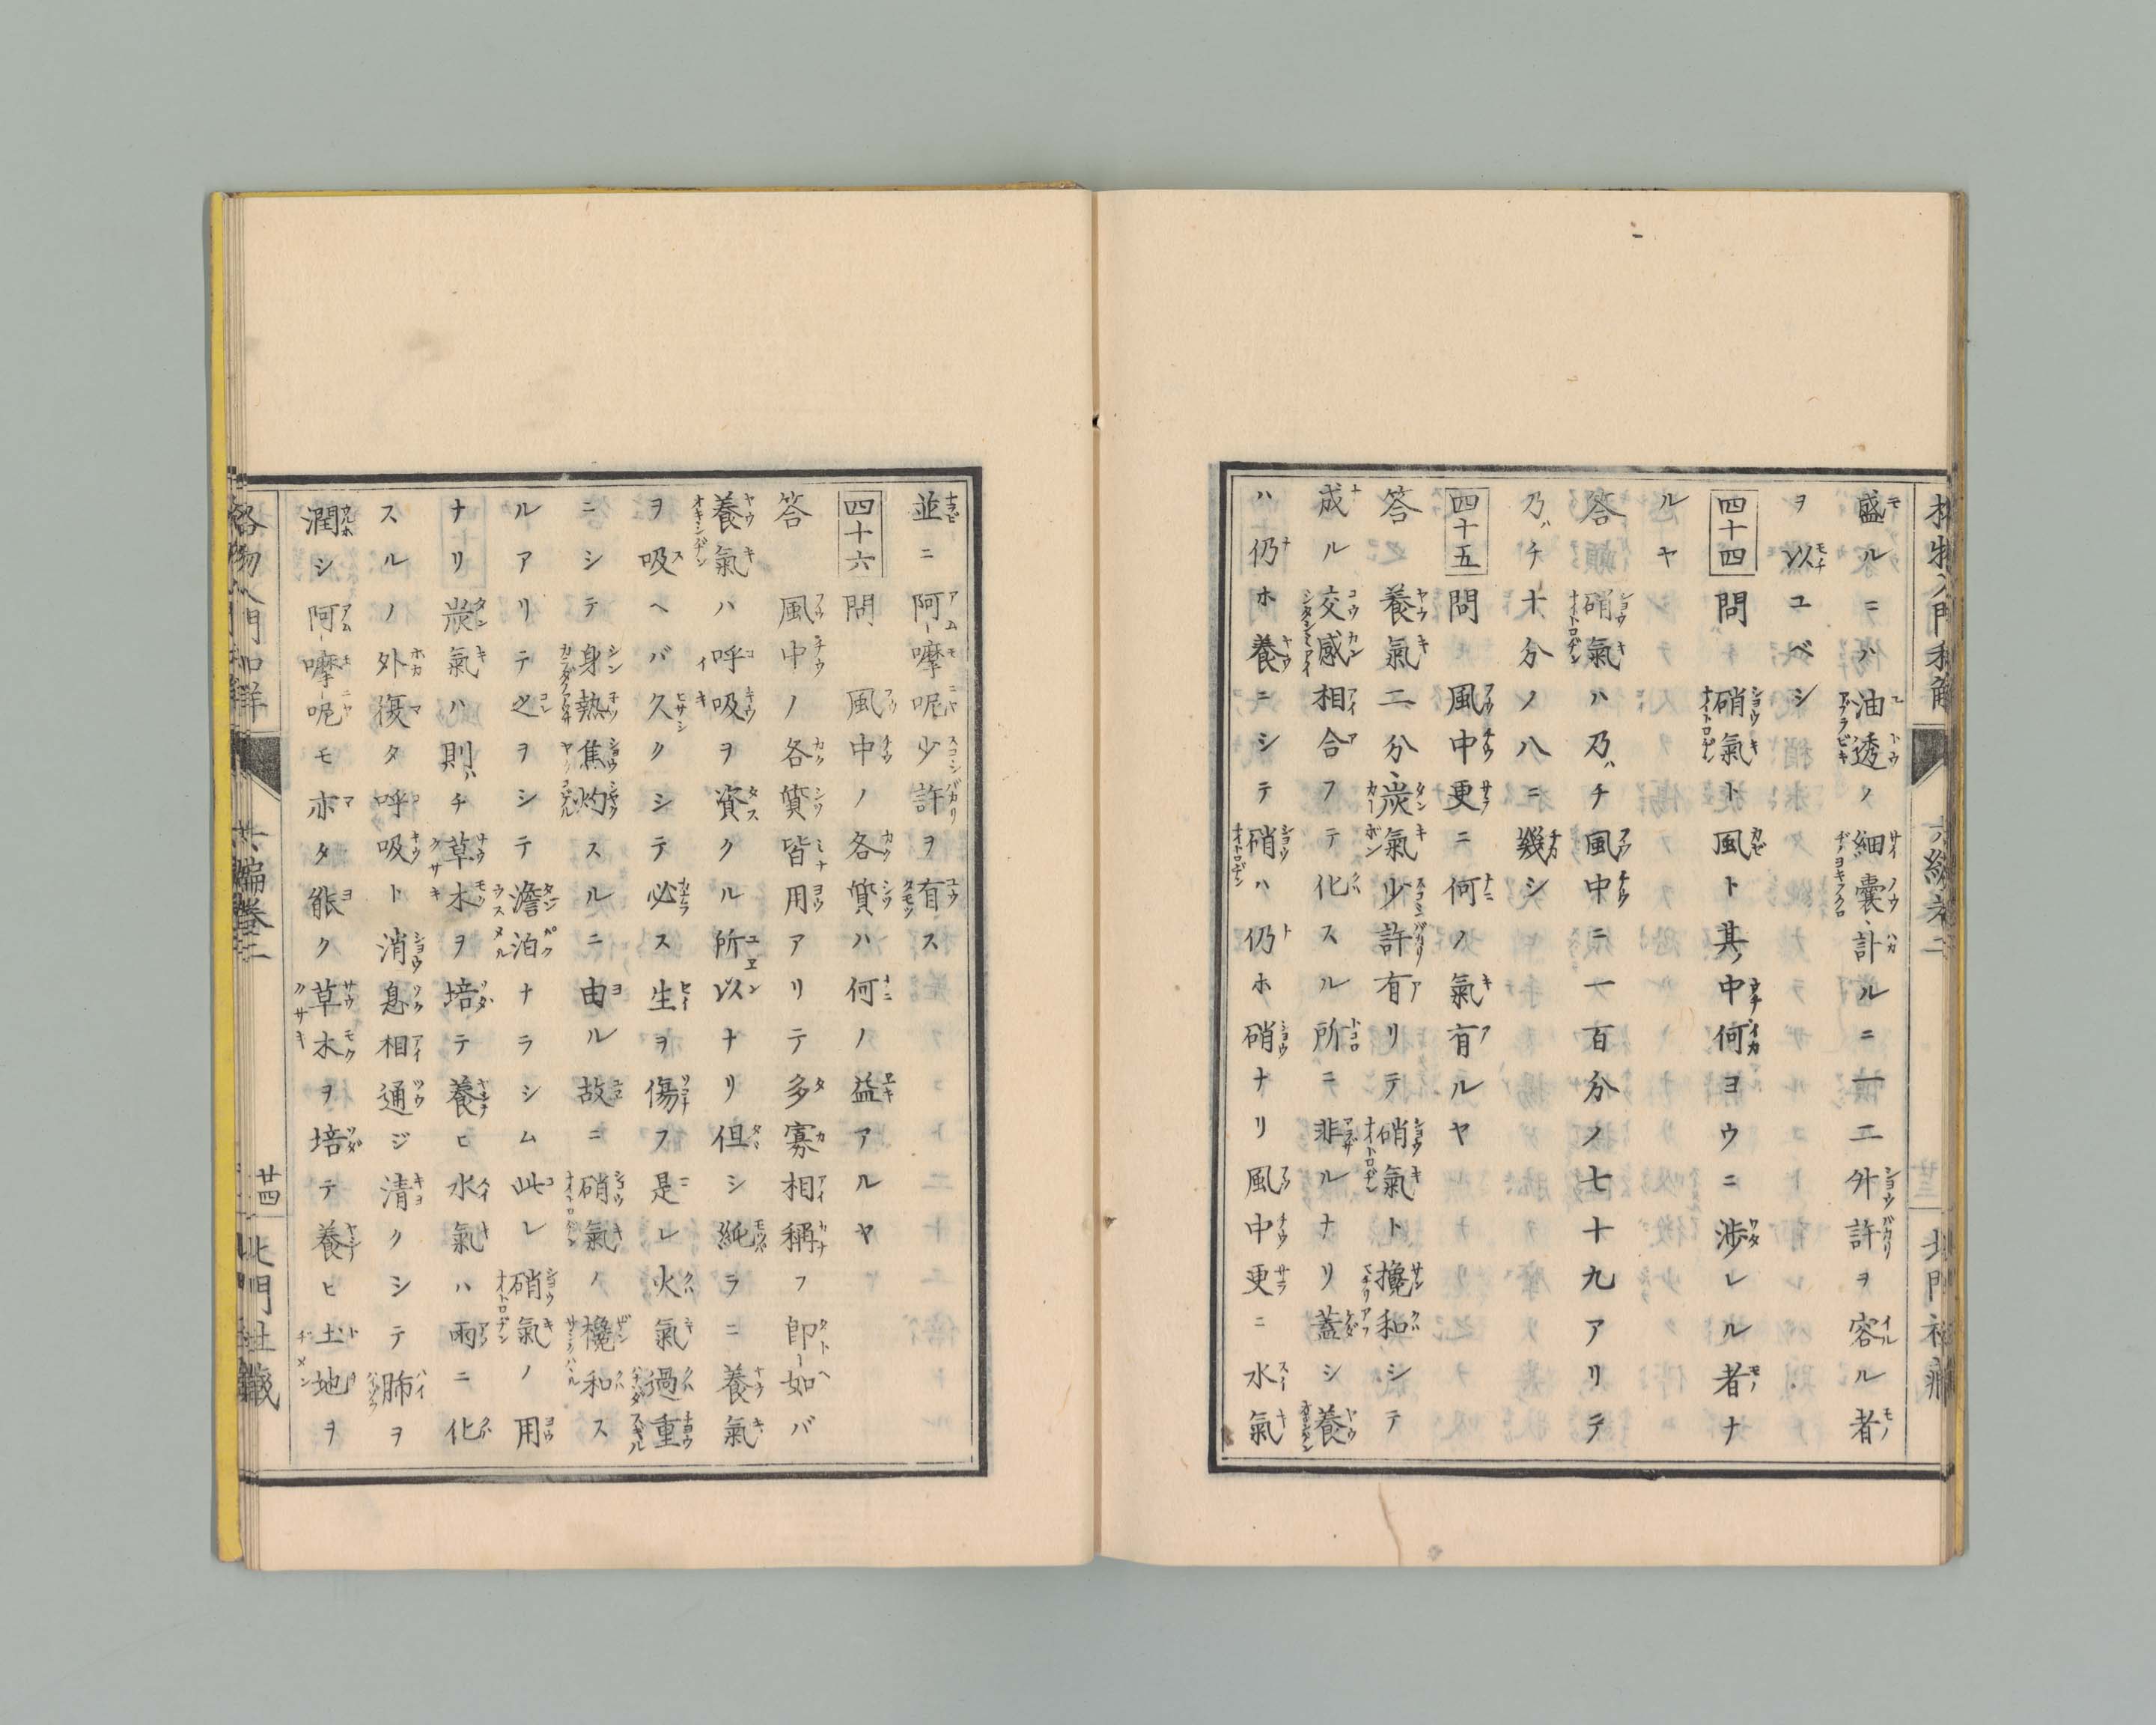 盛ルニハ油透ノ細囊計ルニ一二升許ヲ容ル者
ヲ以ユベシ
四十四 問 硝氣ト風ト其中何ヨウニ渉レル者ナ
ルヤ
答 硝氣ハ乃チ風中ニ一百分ノ七十九アリテ
乃チ十分ノ八ニ幾シ
四十五 問 風中更ニ何ノ氣有ルヤ
答 養氣二分炭氣少許有リテ硝氣ト攙和シテ
成ル交感相合フテ化スル所ニ非ルナリ蓋シ養
ハ仍ホ養ニシテ硝ハ仍ホ硝ナリ風中更ニ水氣
並ニ阿摩呢少許ヲ有ス
四十六 問 風中ノ各質ハ何ノ益アルヤ
答 風中ノ各質皆用アリテ多寡相稱フ即如バ
養氣ハ呼吸ヲ資クル所以ナリ但シ純ラニ養氣
ヲ吸ヘバ久クシテ必ス生ヲ傷フ是レ火氣過重
ニシテ身熱焦灼スルニ由ル故ニ硝氣ノ攙和ス
ルアリテ之ヲシテ澹泊ナラシム此レ硝氣ノ用
ナリ炭氣ハ則チ草木ヲ培テ養ヒ水氣ハ雨ニ化
スルノ外復タ呼吸ト消息相通ジ清クシテ肺ヲ
潤シ阿嚤呢モ亦タ能ク草木ヲ培テ養ヒ土地ヲ
格物入門和解
廿四
北門社藏